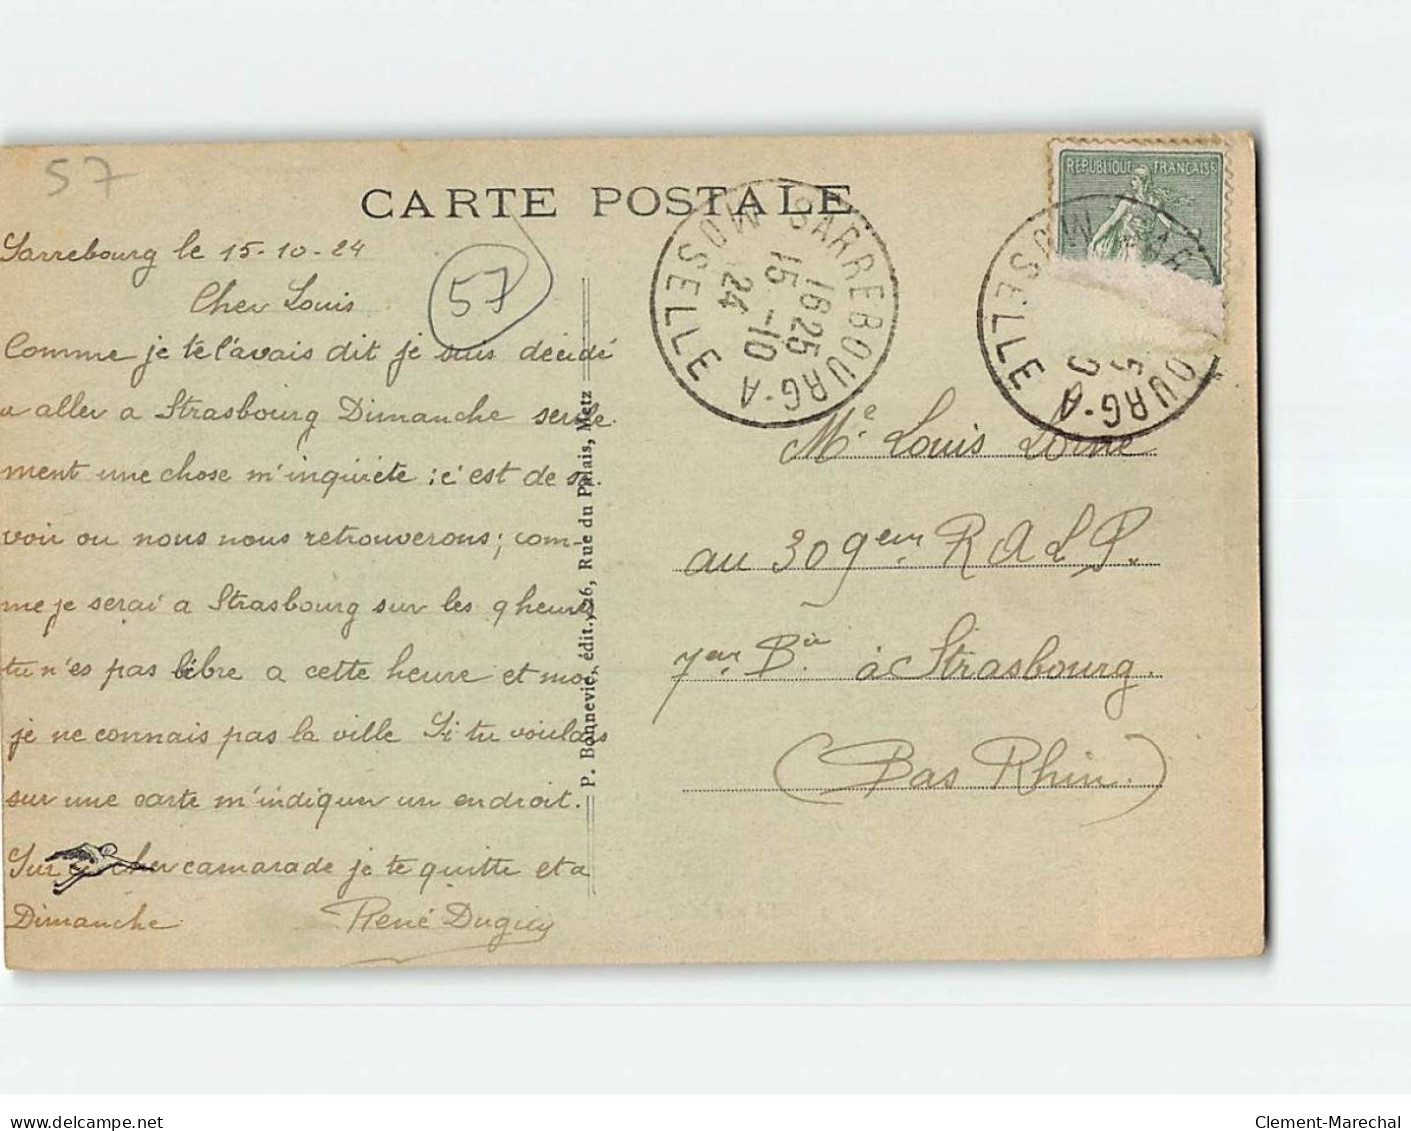 57
CARTE POSTALE
RÉPUBLIQUE FRANÇAISE
SARREBOURG-A
MOSELLE
1625
15-10
24
OURG-A
MOSELLE
57
Sarrebourg le 15-10-24
Cher Louis
Comme je te l'avais dit je suis décidé
a aller a Strasbourg Dimanche seule
ment une chose m'inquiéte : c'est de sa
voir ou nous nous retrouverons ; com-
me je serai a Strasbourg sur les 9 heures
tu n'es pas libre a cette heure et moi
je ne connais pas la ville Si tu voulais
sur une carte m'indiquer un endroit.
Sur ce cher camarade je te quitte et a
Dimanche René Duguy
P. Bonnevie, édit., 26, Rue du Palais, Metz
Me Louis Lorne
au 309eme R A L P.
7eme Bie à Strasbourg.
(Bas Rhin.)
www.delcampe.net
Clement-Marechal